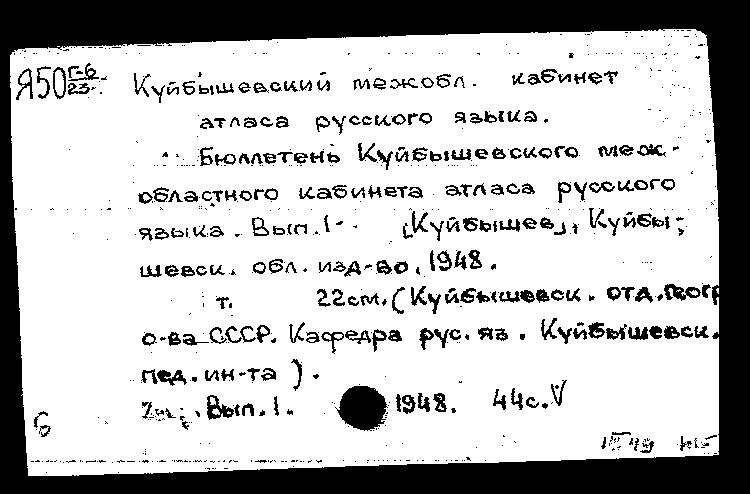 Я50 Г-6
23
Куйбышевский межобл. кабинет
атласа русского языка.
Бюллетень Куйбышевского меж-
областного кабинета атласа русского
языка. Вып. 1- [Куйбышев], Куйбы-
шевск. обл. изд-во, 1948.
т. 22см. (Куйбышевск. отд. Геогр
о-ва СССР. Кафедра рус. яз. Куйбышевск.
пед. ин-та).
Вып. 1. 1948. 44с. V
Б